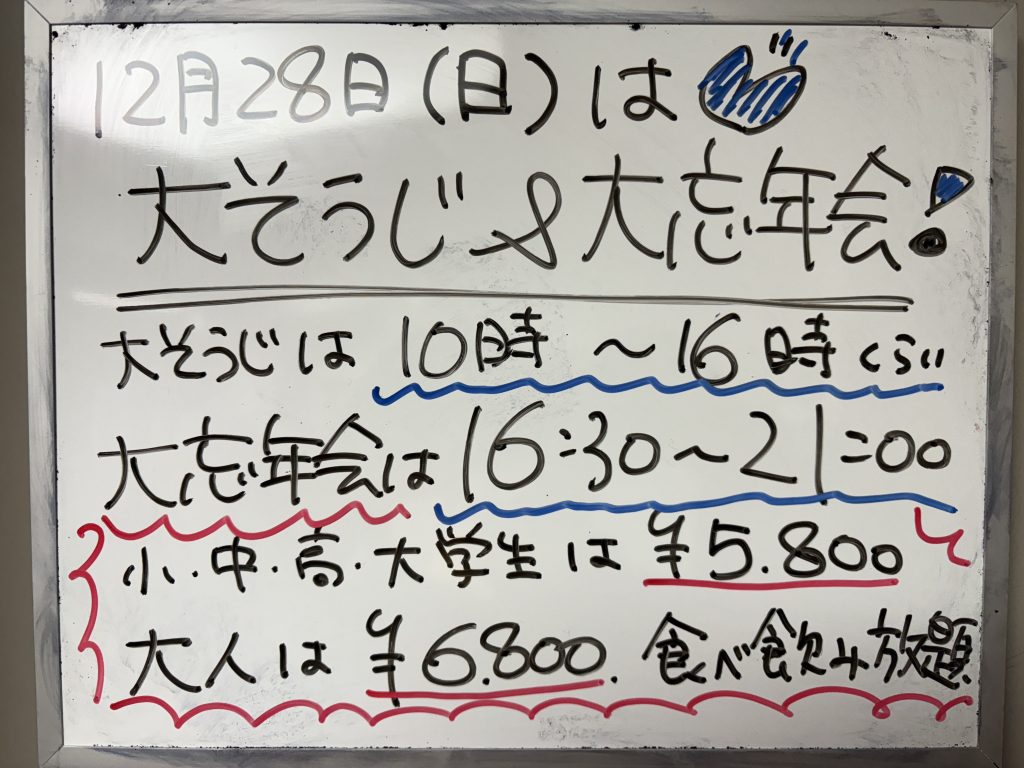 12月28日(日)は
大そうじ&大忘年会!
大そうじは 10時～16時くらい
大忘年会は16:30～21:00
小・中・高・大学生は ¥5.800
大人は ¥6.800. 食べ飲み放題